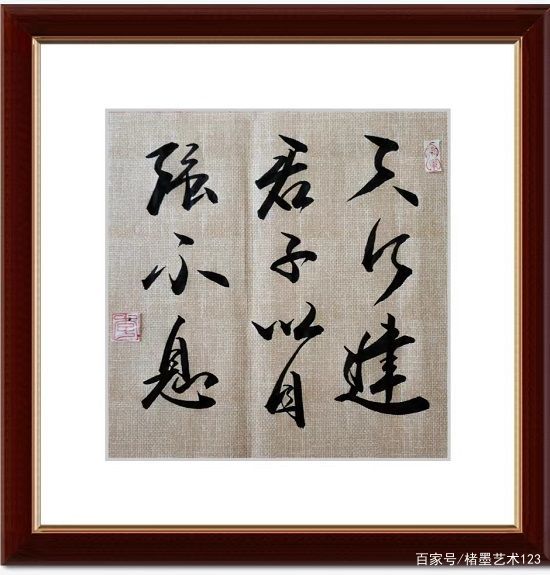 天行健
君子以自
强不息
百家号/楮墨艺术123